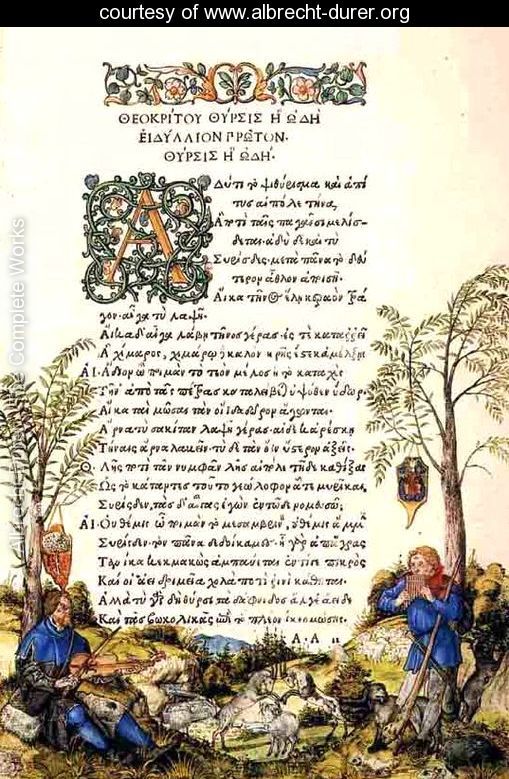 courtesy of www.albrecht-durer.org
ΘΕΟΚΡΙΤΟΥ ΘΥΡΣΙΣ Ἢ ΩΔΗ
ΕΙΔΥΛΛΙΟΝ ΠΡΩΤΟΝ.
ΘΥΡΣΙΣ Ἢ ΩΔΗ.
Αδύ τι τὸ ψιθύρισμα καὶ ἁ πί
τυς αἰπόλε τήνα,
Ἃ ποτὶ ταῖς παγαῖσι μελίσ-
δεται. ἁδὺ δὲ καὶ τὺ
Συρίσδες. μετὰ πᾶνα τὸ δεύ
τερον ἆθλον ἀποισῇ.
Αἴκα τῆνος ἕλῃ κεραὸν τρά
γον. αἶγα τὺ λαψῇ.
Αἴκα δ' αἶγα λάβῃ τῆνος γέρας. ἐς τὲ καταρρεῖ
Ἁ χίμαρος, χιμάρῳ καλὸν κρῆς ἔστε κ' ἀμέλξῃς
ΑΙ. Ἅδιον ὦ ποιμὰν τὸ τεὸν μέλος ἢ τὸ καταχὲς
Τῆν' ἀπὸ τᾶς πέτρας καταλείβεται ὑψόθεν ὕδωρ.
Αἴκα ταὶ μῶσαι τὰν οἴιδα δῶρον ἄγωνται.
Ἄρνα τὺ σακίταν λαψῇ γέρας. αἰ δέ κ' ἀρέσκῃ
Τήναις ἄρνα λαβεῖν. τὺ δὲ τὰν ὄιν ὕστερον ἀξεῖς.
Θ. Λῇς ποτὶ τὰν νυμφᾶν λῇς αἰπόλε τῇδε καθίξας
Ὡς τὸ κάταντες τοῦτο γεώλοφον ἅτε μυρῖκαι.
Συρίσδεν. τὰς δ' αἶγας ἐγὼν ἐν τῷδε νομευσῶ.
ΑΙ. Οὐ θέμις ὦ ποιμὰν τὸ μεσαμβρινὸν. οὐ θέμις ἄμμιν
Συρίσδεν. τὸν πᾶνα δεδοίκαμες. ἦ γὰρ ἀπ' ἄγρας
Τανίκα κεκμακὼς ἀμπαύεται. ἐντί γε πικρὸς
Καὶ οἱ ἀεὶ δριμεῖα χολὰ ποτὶ ῥινὶ κάθηται.
Ἀλλὰ τὺ γὰρ δὴ θύρσι τὰ δάφνιδος ἄλγεα εἶδες
Καὶ τᾶς βωκολικᾶς ἐπὶ τὸ πλέον ἵκεο μώσης.
Α. Α ii
Albrecht Dürer - The Complete Works
www.albrecht-durer.org